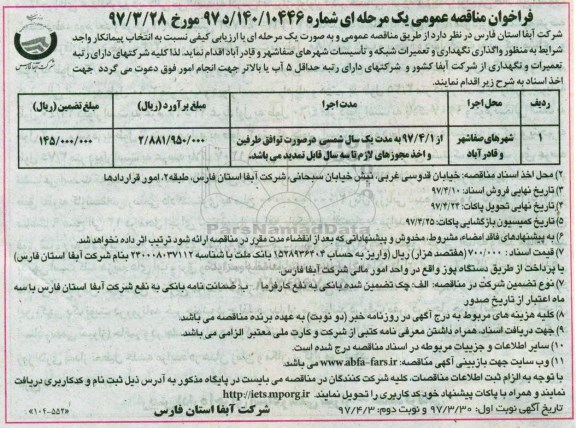 فراخوان مناقصه عمومی یک مرحله ای شماره ۹۷۵/۱۴۰/۱۰۴۴۶ مورخ ۹۷/۳/۲۸
شرکت آبفا استان فارس در نظر دارد از طریق مناقصه عمومی و به صورت یک مرحله ای با ارزیابی کیفی نسبت به انتخاب پیمانکار واجد
شرایط به منظور واگذاری نگهداری و تعمیرات شبکه و تأسیسات شهرهای صفاشهر و قادرآباد اقدام نماید. لذا کلیه شرکتهای دارای رتبه
تعمیرات و نگهداری از شرکت آبفا کشور و شرکتهای دارای رتبه حداقل ۵ آب یا بالاتر جهت انجام امور فوق دعوت می گردد جهت
اخذ اسناد به شرح زیر اقدام نمایند.
ردیف محل اجرا مدت اجرا مبلغ برآورد (ریال) مبلغ تضمین (ریال)
۱ شهرهای صفاشهر و قادرآباد از ۹۷/۴/۱ به مدت یک سال شمسی درصورت توافق طرفین و اخذ مجوزهای لازم تا سه سال قابل تمدید می باشد. ۲/۸۸۱/۹۵۰/۰۰۰ ۱۴۵/۰۰۰/۰۰۰
۲) محل اخذ اسناد مناقصه: خیابان قدوسی غربی، نبش خیابان سبحانی، شرکت آبفا استان فارس، طبقه۲، امور قراردادها
۳) تاریخ نهایی فروش اسناد: ۹۷/۴/۱۰
۴) تاریخ نهایی تحویل پاکات: ۹۷/۴/۲۴
۵) تاریخ کمیسیون بازگشایی پاکات: ۹۷/۴/۲۵
ParsNamadData
۶) به پیشنهادهای فاقد امضاء، مشروط، مخدوش و پیشنهاداتی که بعد از انقضاء مدت مقرر در مناقصه ارائه شود ترتیب اثر داده نخواهد شد.
۷) قیمت اسناد: ۷۰۰/۰۰۰ (هفتصد هزار) ریال (واریز به حساب ۱۵۲۸۹۳۶۴۰۴ بانک ملت با شناسه ۲۳۰۰۰۸۰۳۷۱۱۲ بنام شرکت آبفا استان فارس)
یا پرداخت از طریق دستگاه پوز واقع در واحد امور مالی شرکت آبفا فارس.
۷) نوع تضمین شرکت در مناقصه: الف: چک تضمین شده بانکی به نفع کارفرما ب: ضمانت نامه بانکی به نفع شرکت آبفا استان فارس با سه
ماه اعتبار از تاریخ صدور
۸) کلیه هزینه های مربوطه به درج آگهی در روزنامه خبر (دو نوبت) به عهده برنده مناقصه می باشد.
۹) جهت دریافت اسناد، همراه داشتن معرفی نامه کتبی از شرکت و کارت ملی معتبر الزامی می باشد.
۱۰) سایر اطلاعات و جزییات مربوطه در اسناد مناقصه درج شده است.
۱۱) وب سایت جهت بازبینی آگهی مناقصه: www.abfa-fars.ir می باشد.
با توجه به الزام ثبت اطلاعات مناقصات، کلیه شرکت کنندگان در مناقصه می بایست در پایگاه مذکور به آدرس ذیل ثبت نام و کدکاربری دریافت
نمایند و همراه با پاکات پیشنهاد خود کد کاربری را تحویل نمایند. http://iets.mporg.ir
تاریخ آگهی نوبت اول: ۹۷/۳/۳۰ و نوبت دوم: ۹۷/۴/۳
شرکت آبفا استان فارس
«۱۰۴-۵۵۲»